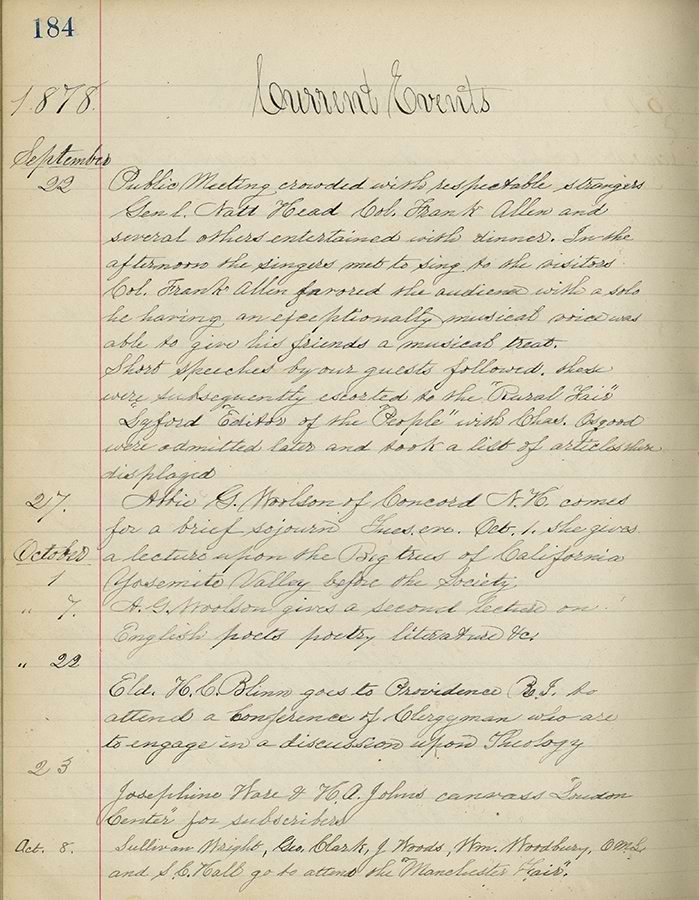 184
1878. Current Events
September
22 Public Meeting crowded with respectable strangers
Genl. Natt Head Col. Frank Allen and
several others entertained with dinner. In the
afternoon the singers met to sing to the visitors
Col. Frank Allen favored the audience with a solo
he having an exceptionally musical voice was
able to give his friends a musical treat.
Short speeches by our guests followed. these
were subsequently escorted to the "Rural Fair"
"Lyford" Editor of the "People" with Chas. Osgood
were admitted later and took a list of articles there
displayed
27. Abbie G. Woolson of Concord N.H. comes
for a brief sojourn Tues. eve. Oct. 1. she gives
October a lecture upon the Big trees of California
1 Yosemite Valley before the Society
" 7. A. G. Woolson gives a second lecture on
English poets poetry literature &c.
" 22
Eld. H. C. Blinn goes to Providence R.I. to
attend a Conference of Clergyman who are
to engage in a discussion upon Theology
23
Josephine Ware & H. A. Johns canvass "Loudon
Center" for subscribers
Oct. 8. Sullivan Wright, Geo. Clark, J Woods, Wm. Woodbury,
and S. E. Hall go to attend the "Manchester Fair".